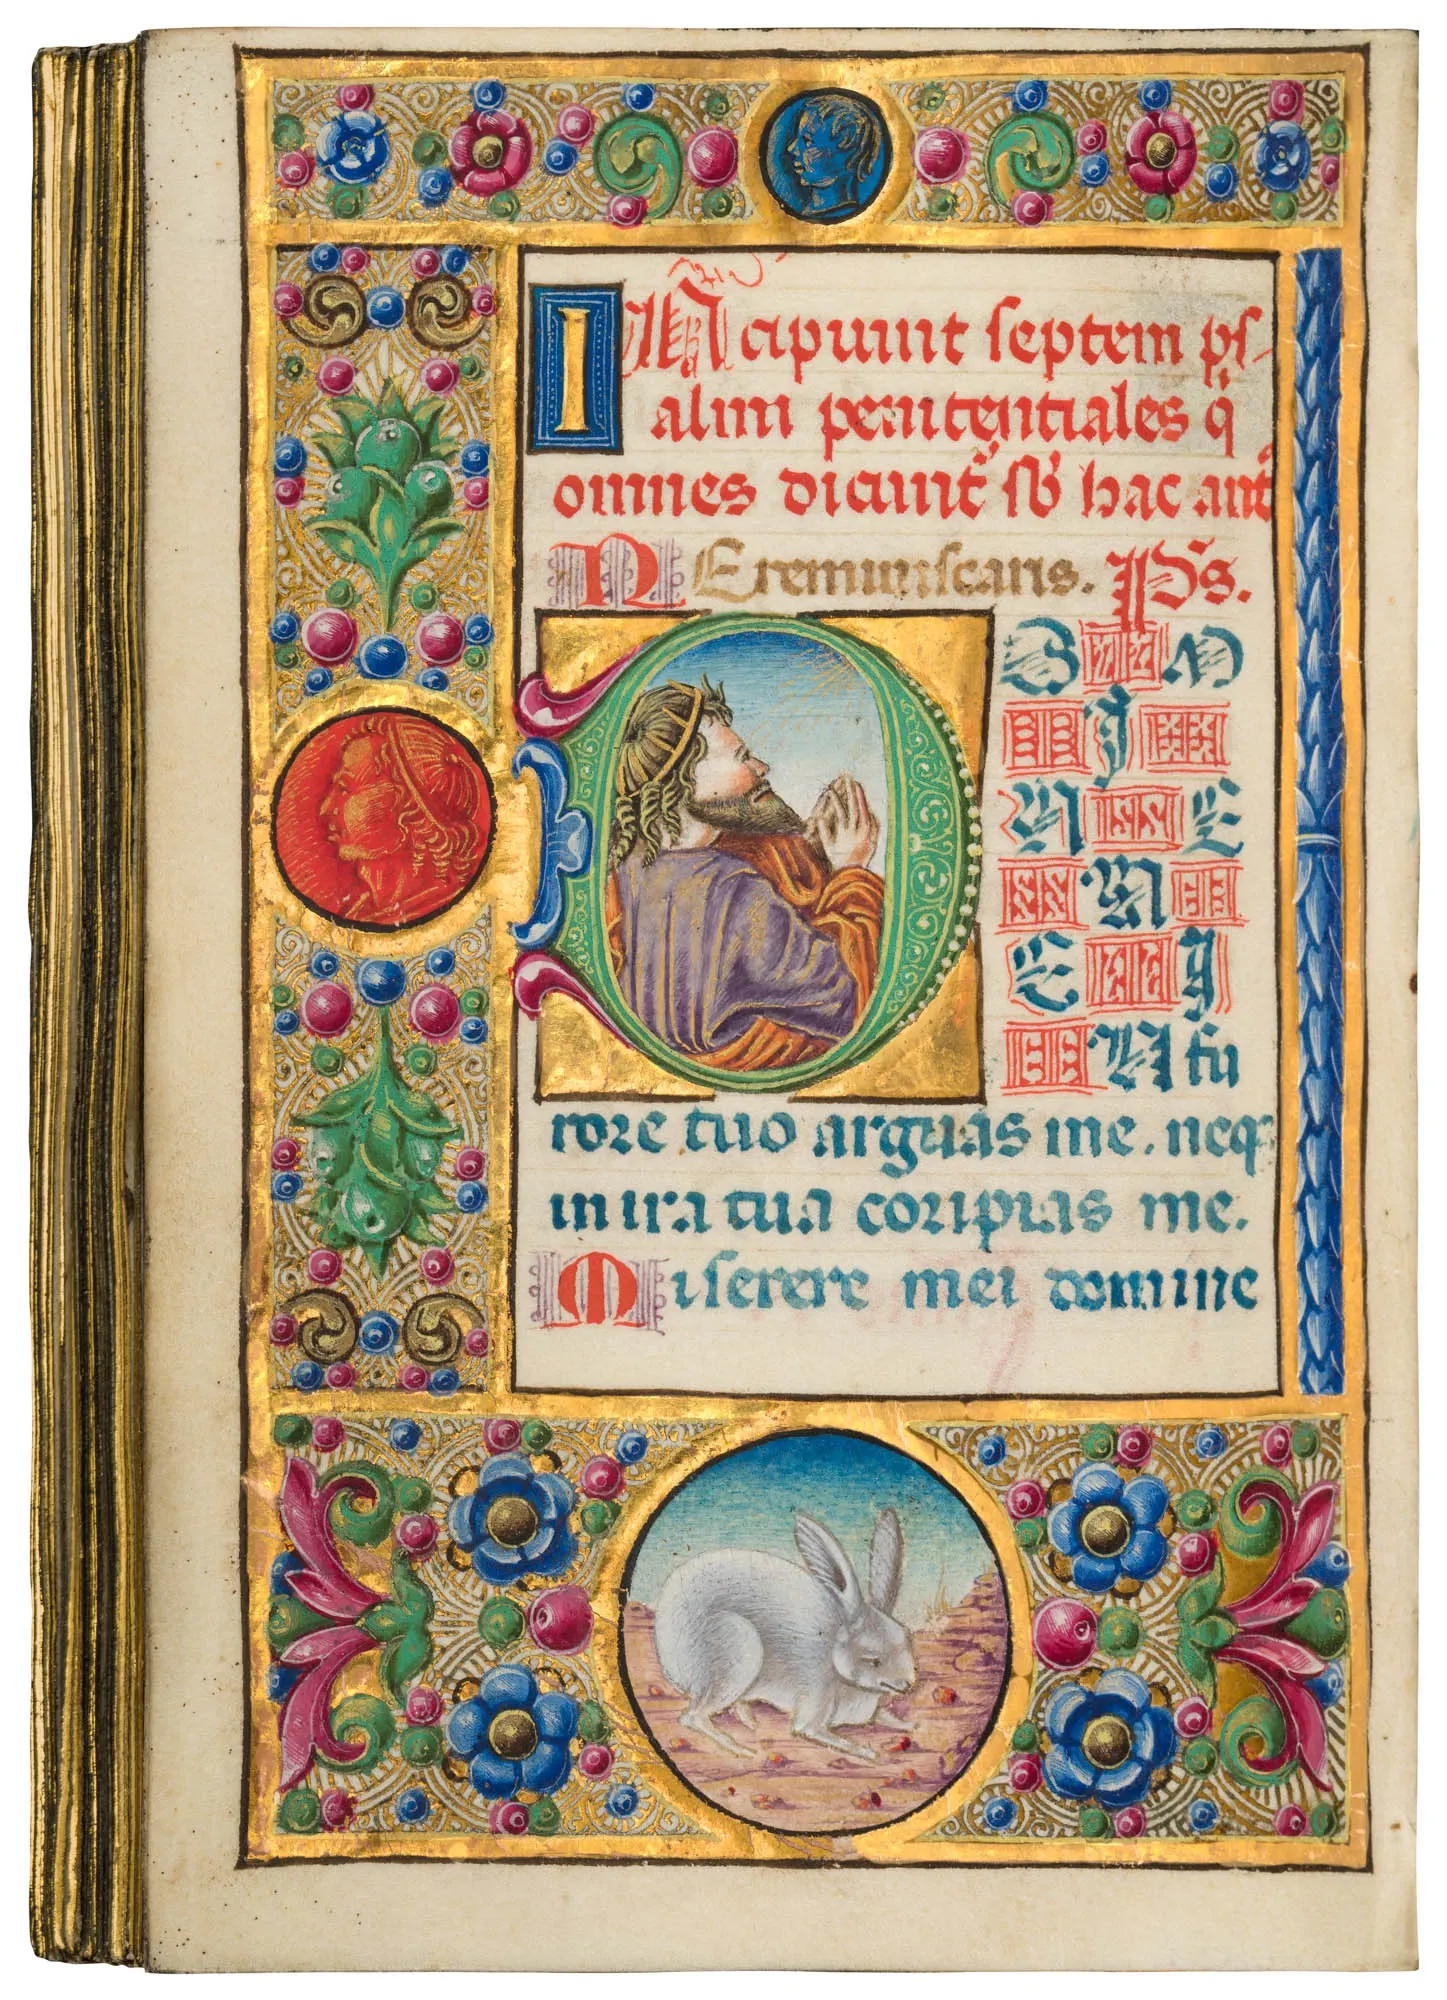 INcipiunt septem ps-
almi penitentiales q̃
omnes dicunt̃ sb̃ hac ant̃
NE reminiscaris. Ps̃.
DO M
I
N E
N
E I
N fu
rore tuo arguas me. neq̃
in ira tua coripias me.
Miserere mei domine